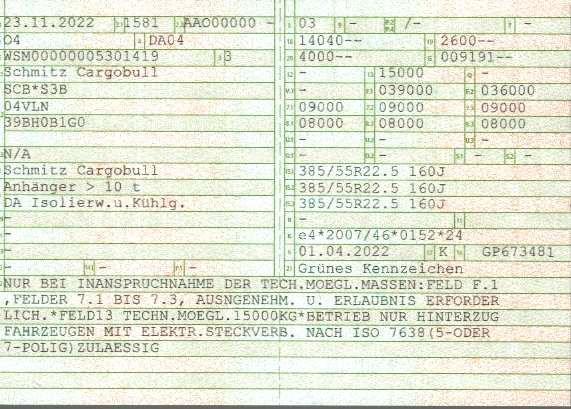 23.11.2022 1581 AAO00000 -
04 DA04
WSM00000005301419 3
Schmitz Cargobull
SCB*S3B
04VLN
39BH0B1G0
N/A
Schmitz Cargobull
Anhänger > 10 t
DA Isolierw.u.Kühlg.
-
-
-
- - -
03 - /- -
14040-- 2600--
4000-- 009191--
- 15000 -
- 039000 036000
09000 09000 09000
08000 08000 08000
- - -
- - - -
385/55R22.5 160J
385/55R22.5 160J
385/55R22.5 160J
-
e4*2007/46*0152*24
01.04.2022 K GP673481
Grünes Kennzeichen
NUR BEI INANSPRUCHNAHME DER TECH.MOEGL.MASSEN:FELD F.1
,FELDER 7.1 BIS 7.3, AUSNGENEHM. U. ERLAUBNIS ERFORDER
LICH.*FELD13 TECHN.MOEGL.15000KG*BETRIEB NUR HINTERZUG
FAHRZEUGEN MIT ELEKTR.STECKVERB. NACH ISO 7638(5-ODER
7-POLIG)ZULAESSIG